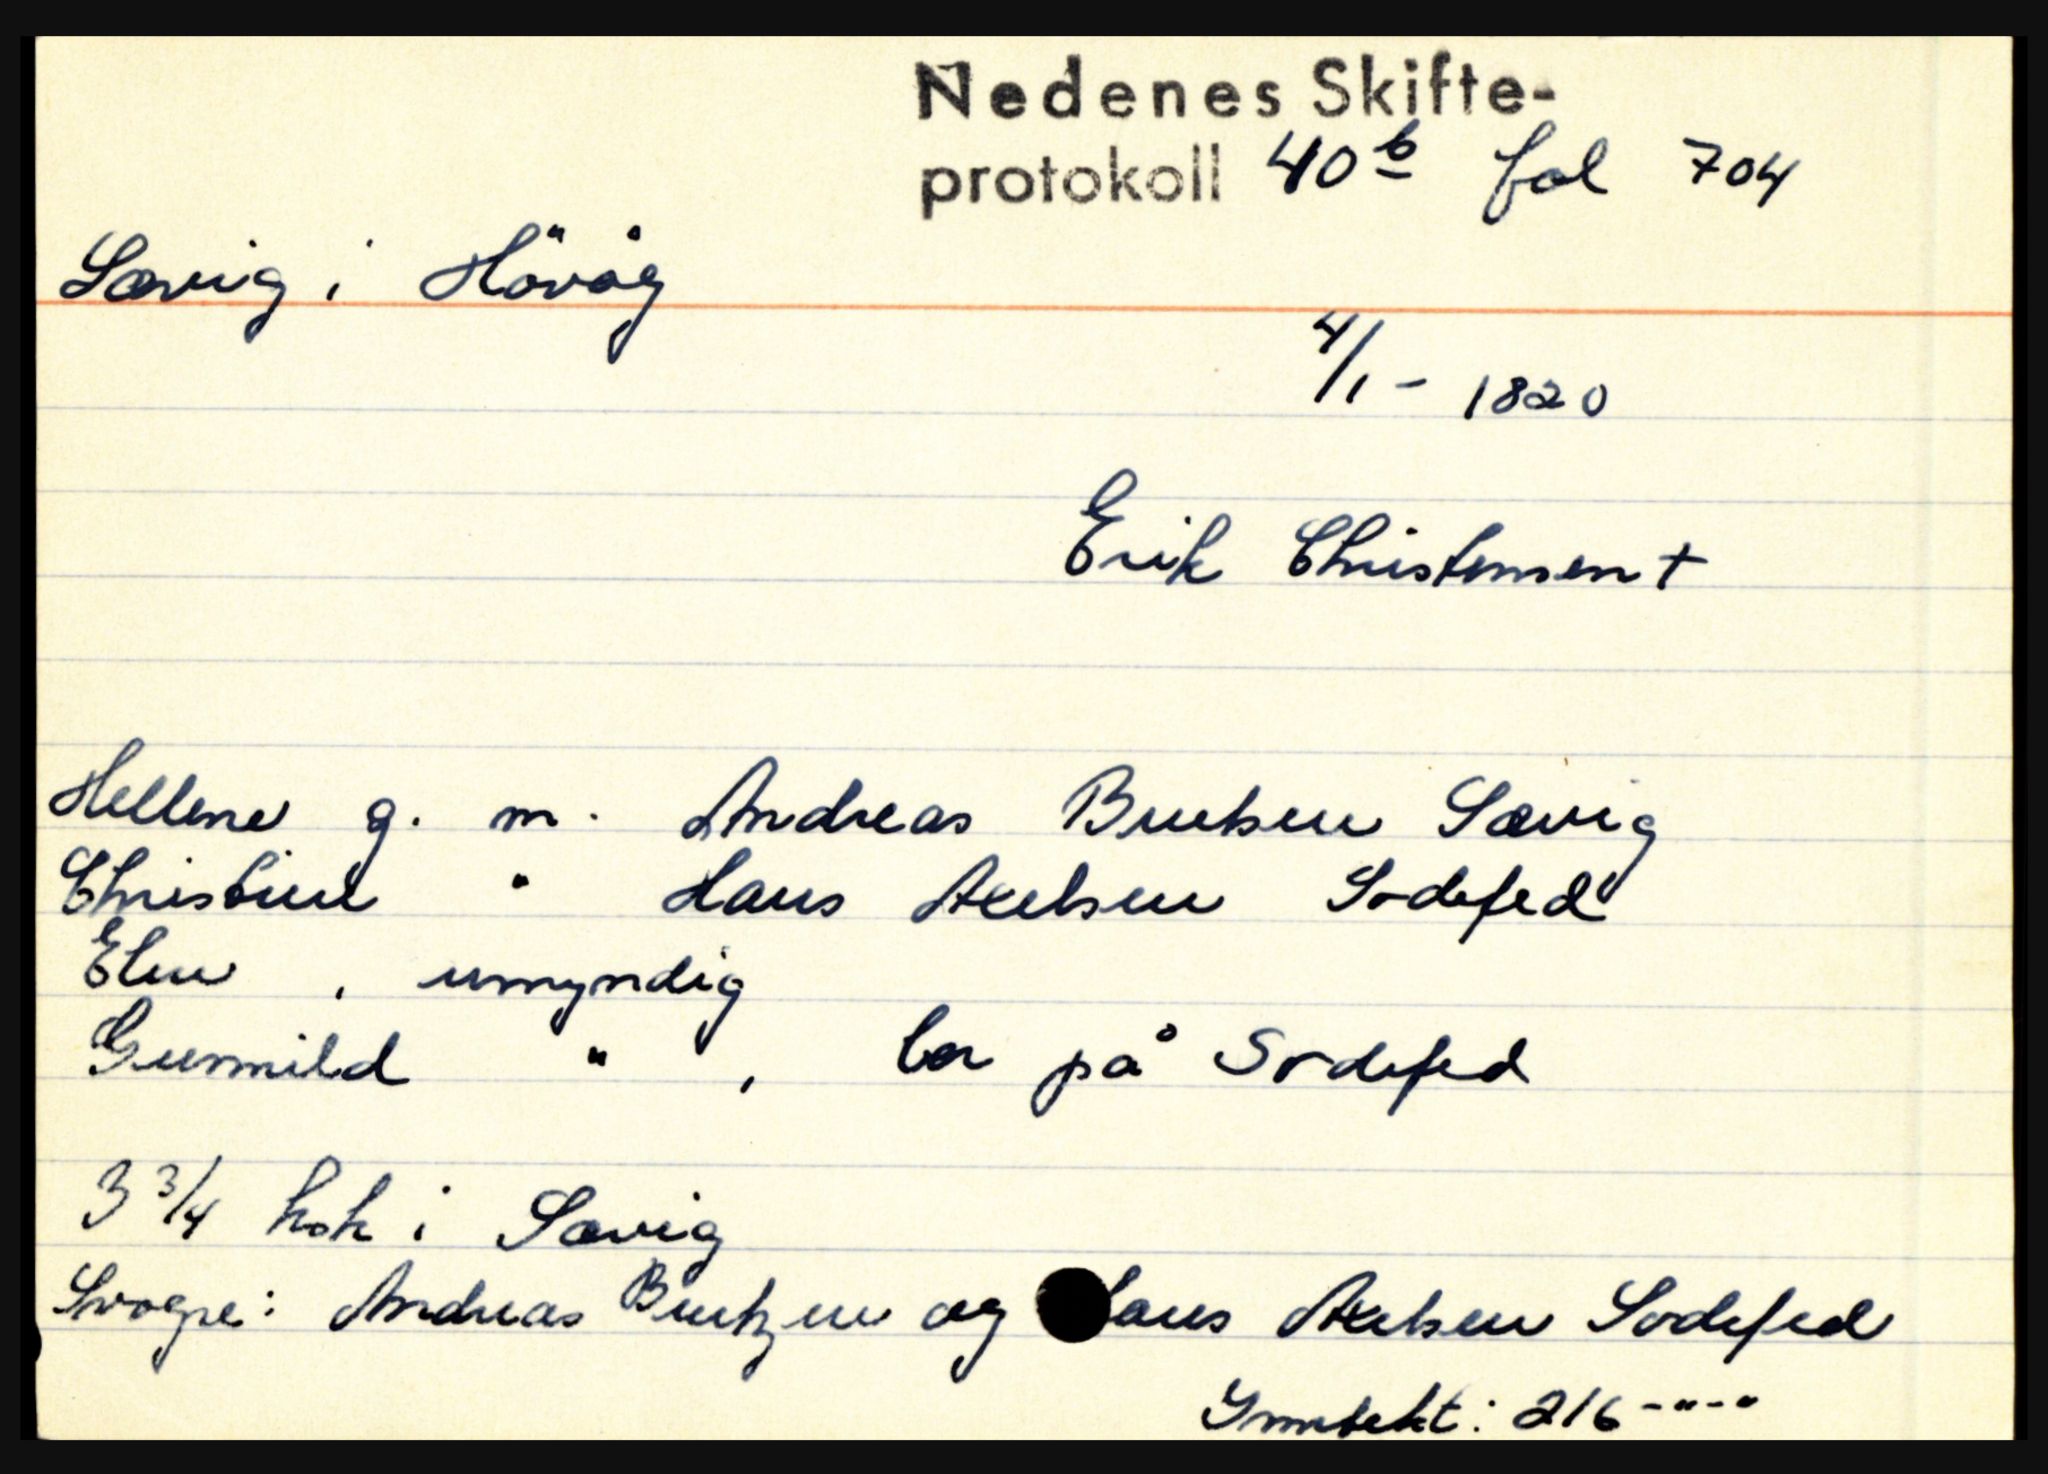 Nedenes Skifte-
protokoll 40b fol 704
Sævig i Hövåg
4/1 - 1820
Erik Christensen †
Hellene g. m. Andreas Berntsen Sævig
Christine " Hans Axelsen Sodefed
Elen , umyndig
Gunnild " , bor på Sodefed
3 3/4 kok i Sævig
Svogre: Andreas Berntzen og Hans Axelsen Sodefed
Inntekt: 216-"-"